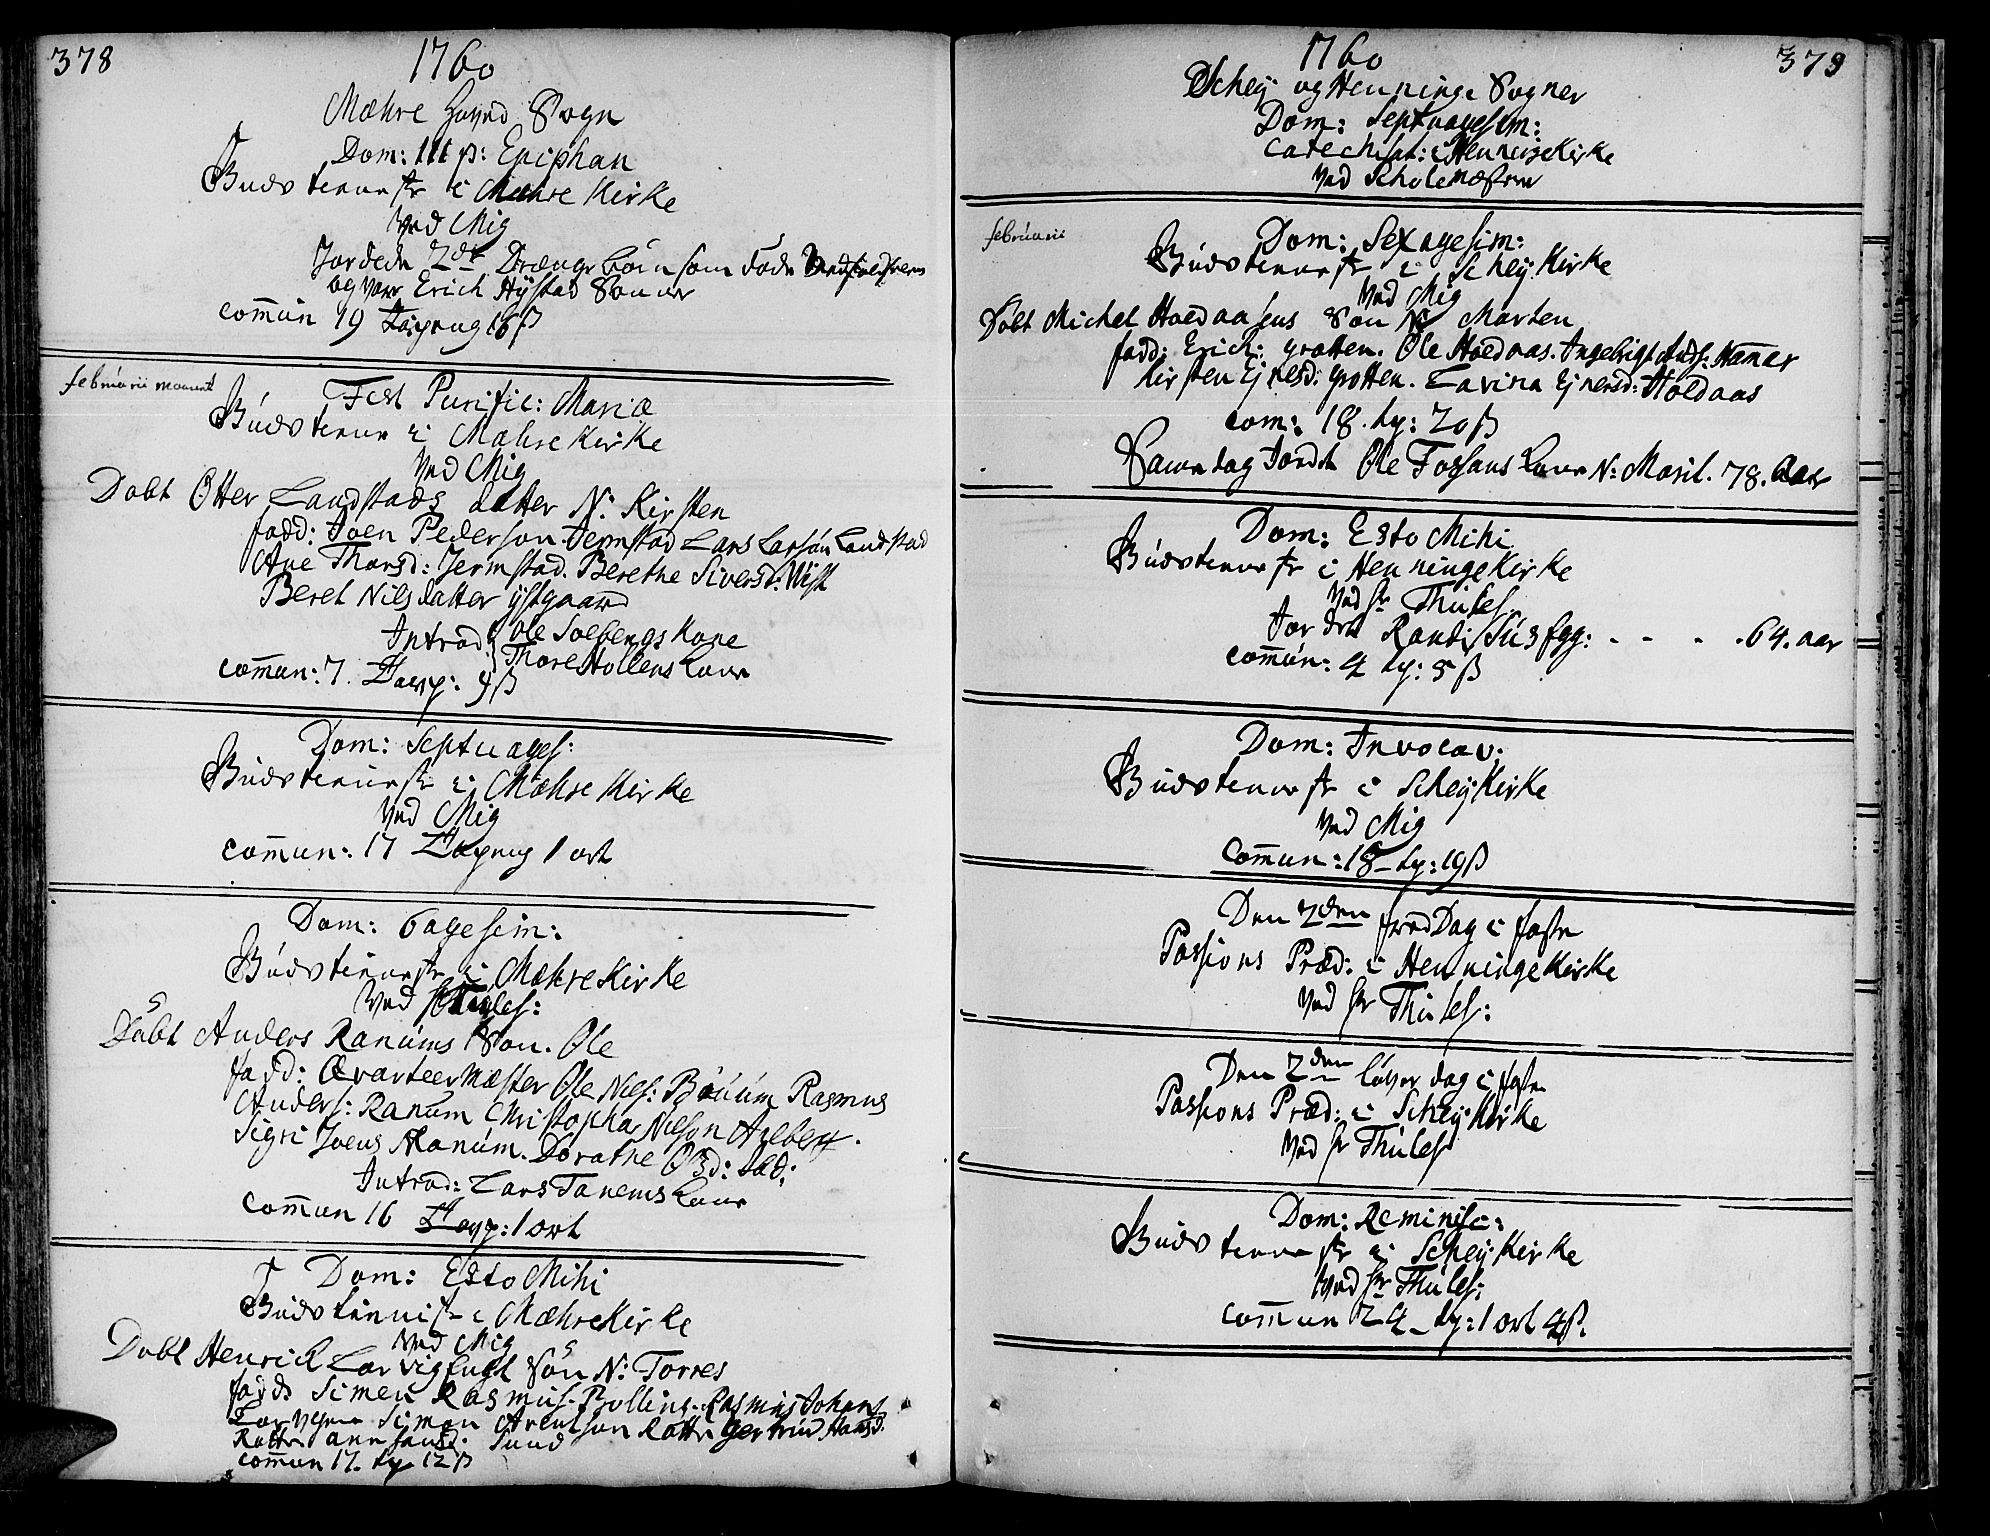 378
1760
Mæhre Hoved Sogn
Dom: III p: Epiphan
Gudstieniste i Mæhre Kirke
Ved Mig
Jordede 2de Drænge børn som
og var Erich Hÿstad Sønner
com̄un 19 Tavpeng 16 ß
februarii maanet
Fest Purific: Mariæ
Gudstieniste i Mæhre Kirke
Ved Mig
Døbt Otter Landstads datter N: Kirsten
fadd: Joen Pederson Jermstad Lars Larsøn Landstad
Ane Thorsd: Jermstad. Berethe Siversd: Wist
Beret Nilsdatter ÿstgaard
Introd: Ole Solbergs Kone
Thore Hollens Kone
com̄un: 7. Tavp: 9 ß
Dom: Septuages:
Gudstieniste i Mæhre Kirke
Ved Mig
com̄un: 17 Tavpeng 1 ort
Dom: 6agesim:
Gudstieniste i Mæhre Kirke
Ved Hr Thules:
Døbt Anders Ranums Søn. Ole
fadd: Qvarteermæster Ole Niels: Bruum Rasmus
Anders: Ranum Christopha Nilson Aalberg.
Sigri Joens Ranum. Dorathe Olsd: ibd:
Introd: Lars Tanems Kone
com̄un 16 Tavp: 1 ort
Dom: Esto Mihi
Gudstieniste i Mæhre Kirke
Ved Mig
Døbt Henrich Lorvigs Søn N: Torres
fadd Simen Rasmus. Bolling. Rasmus Johans
Simon Arentson Gertrud Hansd.
Sund
com̄un 17. ty 12 ß
379
1760
Schej og Henninge Sogner
Dom: Septuagesim:
Catechisat: i Henninge Kirke
Ved Scholemæsteren
februarii
Dom: Sexagesim:
Gudstieniste i Schej Kirke
Ved Mig
Døbt Michel Hoedaasens Søn N Morten
fadd: Erich: grotten. Ole Hoedaas. Ingebrigt Hamar
Kirsten Ejnersd: grotten. Lavina Ejnersd: Holdaas
com: 18. ty: 20 ß
Samme dag Jordet Ole Fossans Kone N: Maril. 78. Aar
Dom: Esto Mihi
Gudstieniste i Henninge Kirke
Ved Hr Thules.
Jordet Randi Suusegg: - - - . 64. aar
com̄un: 4 ty: 5 ß
Dom: Invocav:
Gudstieniste i Schej Kirke
Ved Mig
com̄un: 18 – ty: 19 ß
Den 2den freDag i faste
Passions Præd: i Henninge Kirke
Ved Hr Thules:
Den 2den løverdag i faste
Passions Præd: i Schej Kirke
Ved Hr Thules
Dom: Reminisc:
Gudstieniste i Schej Kirke
Ved Hr Thules:
com̄un 24 – ty: 1 ort 4 ß.